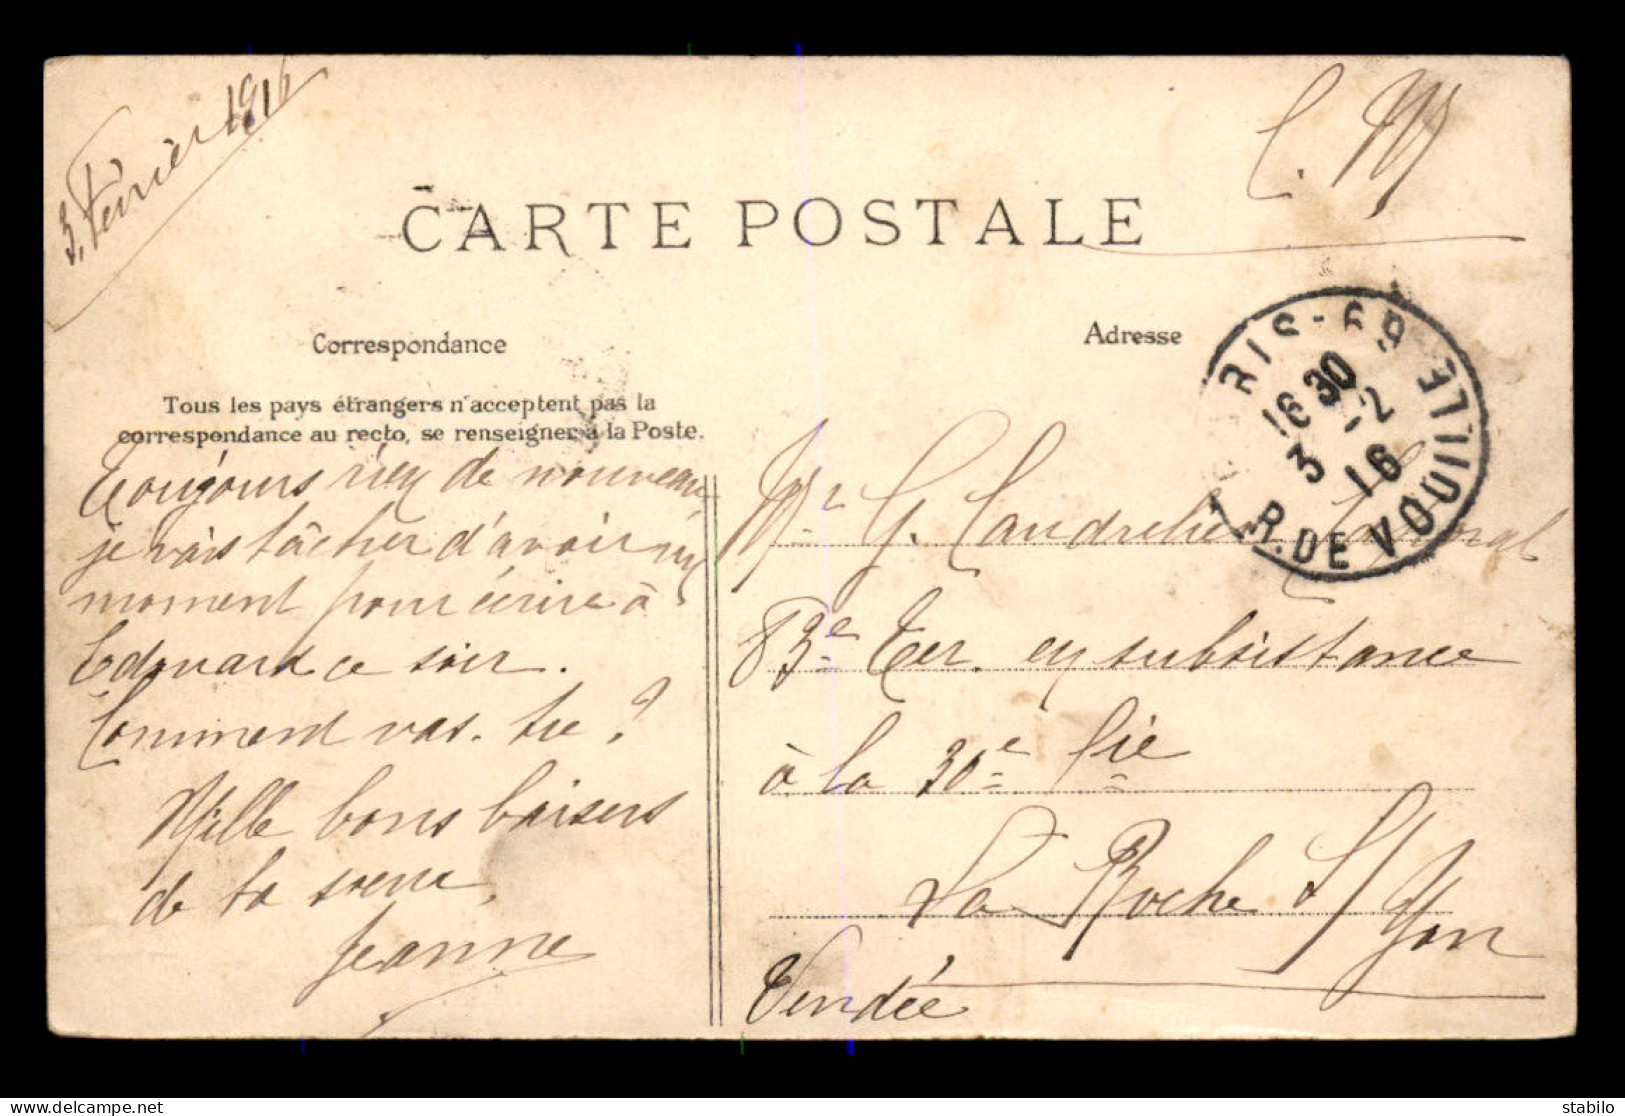 3. Février 1916
C. M
CARTE POSTALE
Correspondance
Adresse
Tous les pays étrangers n'acceptent pas la
correspondance au recto, se renseigner à la Poste.
RIS-69
16 30
3 -2
16
R. DE VOUILLE
Toujours rien de nouveau
je vais tâcher d'avoir un
moment pour écrire à
Edouard ce soir.
Comment vas-tu ?
Mille bons baisers
de ta sœur,
Jeanne
Mr G. Caudrelier Caporal
83e Ter. en subsistance
à la 30e Cie
La Roche s/ Yon
Vendée
stabilo